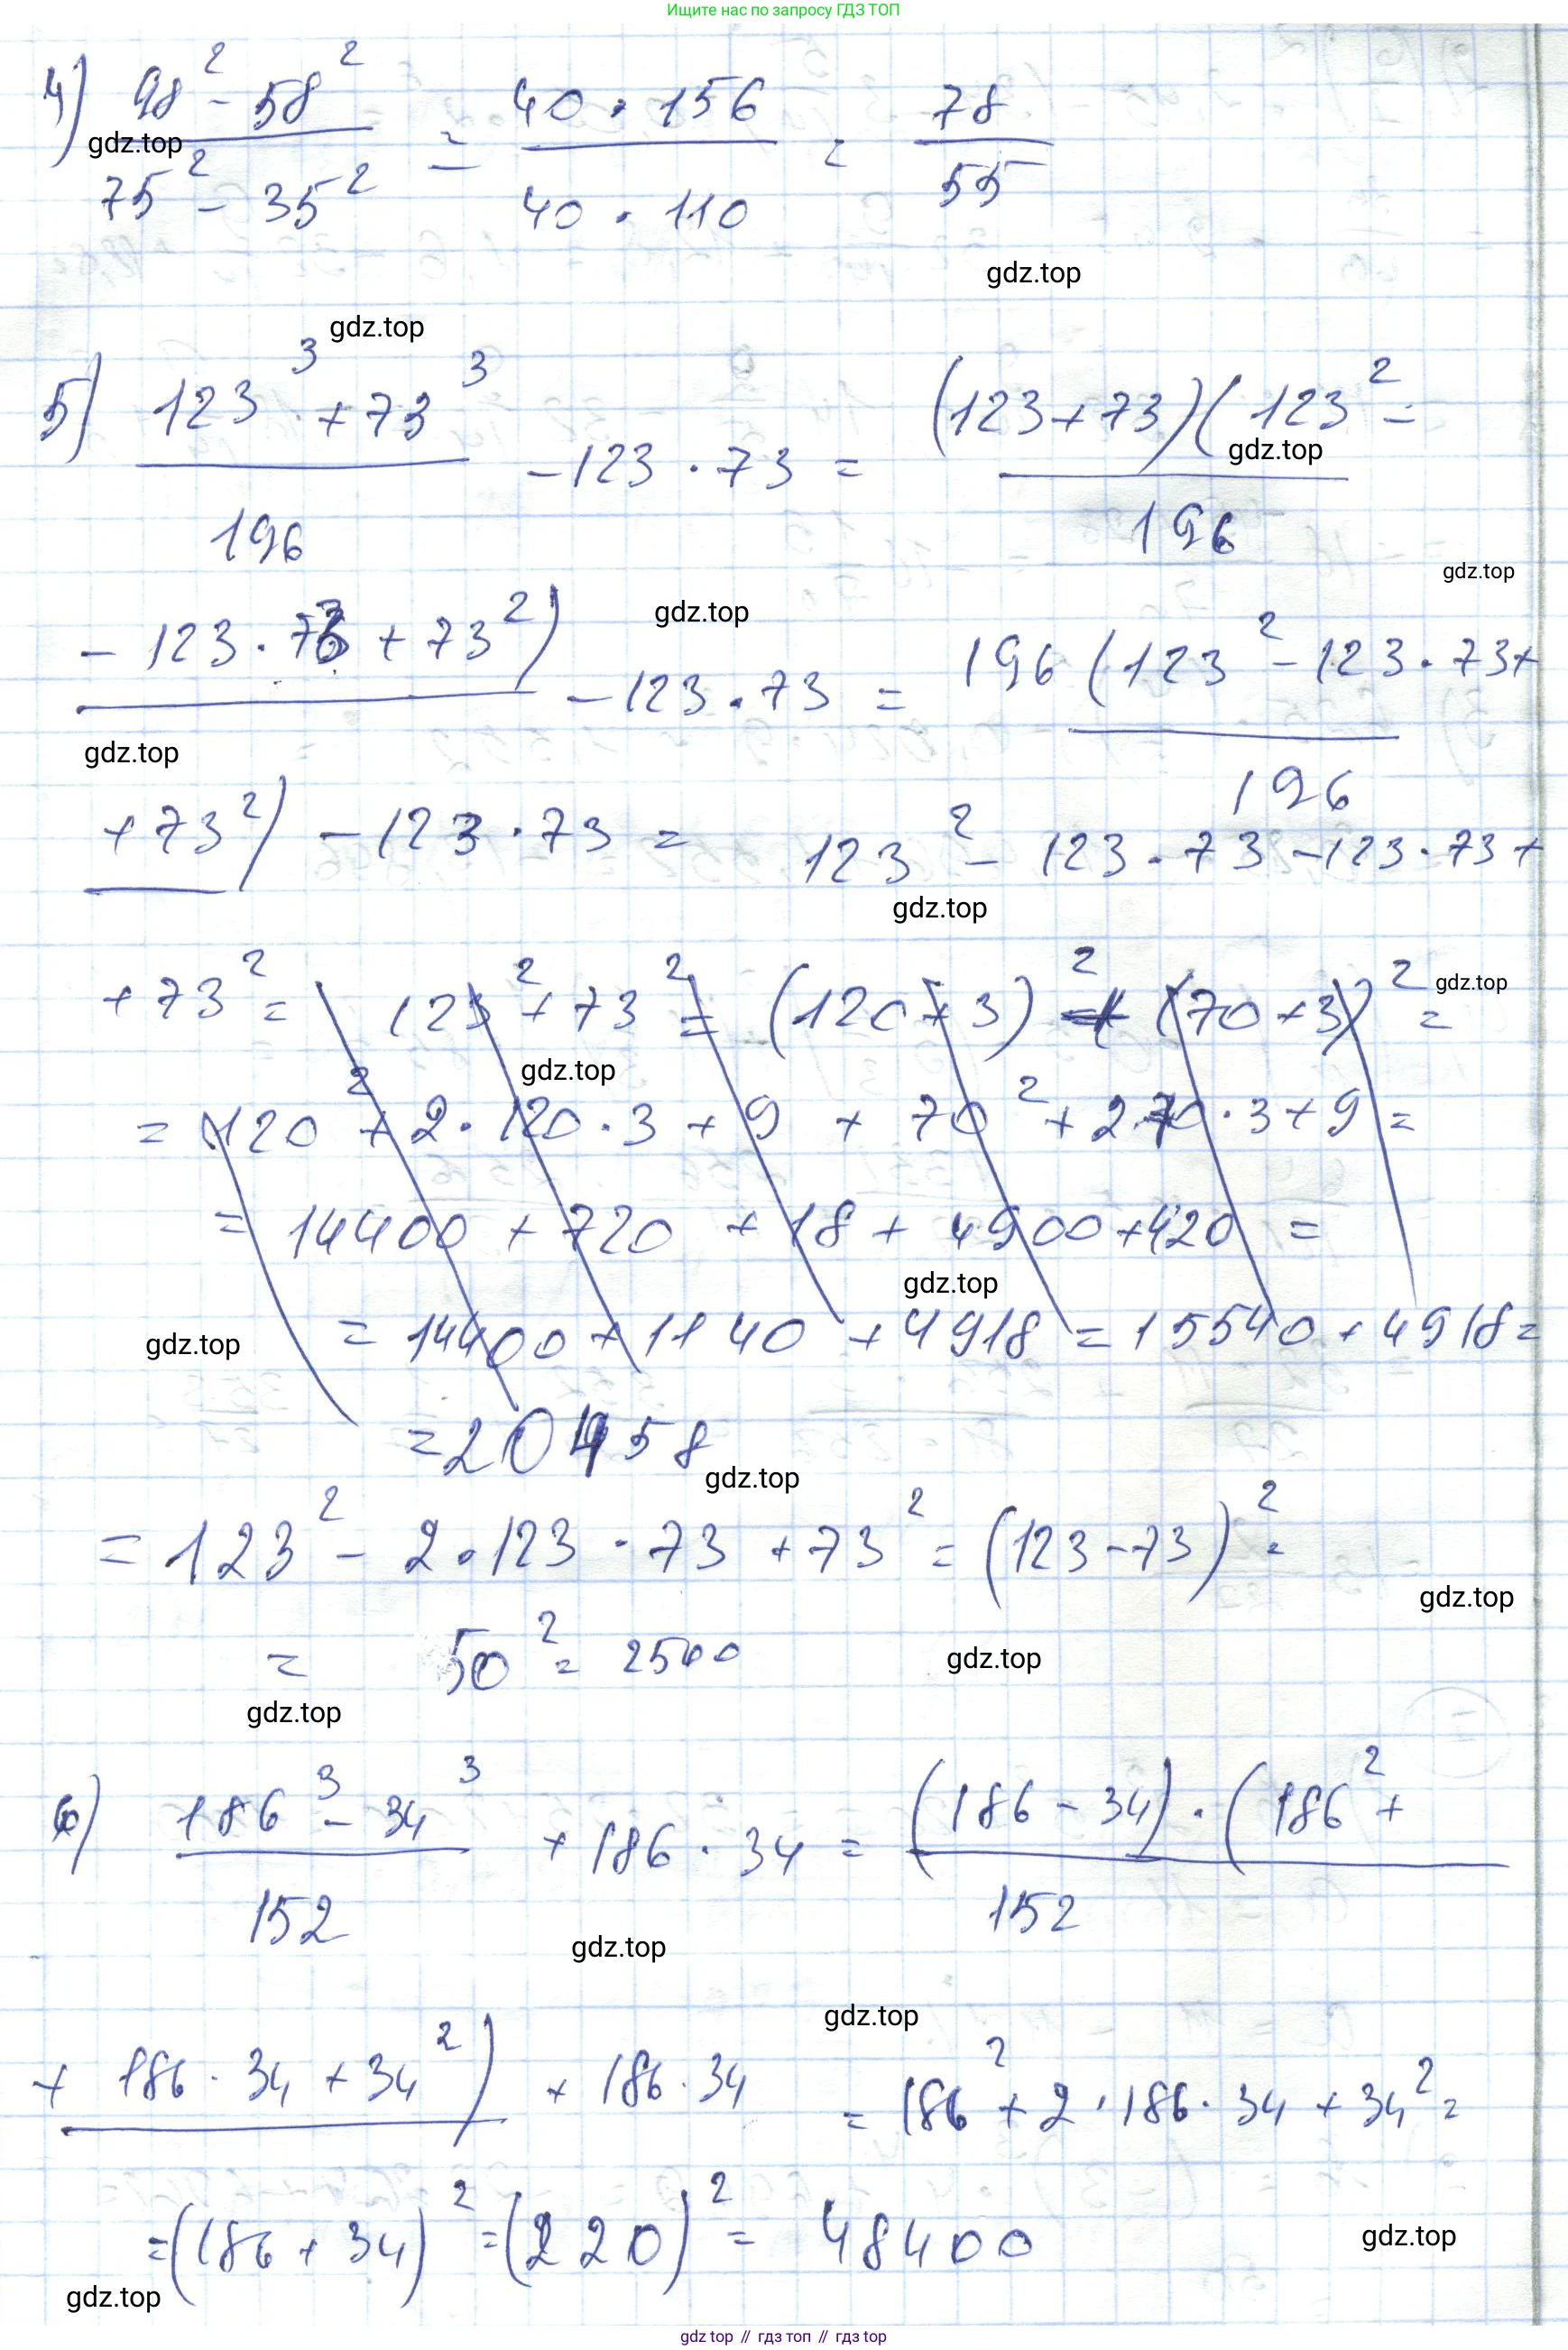 Ищите нас по запросу ГДЗ ТОП
4) (98² - 58²) / (75² - 35²) = (40 · 156) / (40 · 110) = 78 / 55
gdz.top
gdz.top
gdz.top
5) (123³ + 73³) / 196 - 123 · 73 = (123 + 73)(123² - / 196
gdz.top
gdz.top
- 123 · 73 + 73²) - 123 · 73 = 196 (123² - 123 · 73 + / 196
gdz.top
gdz.top
+ 73²) - 123 · 73 = 123² - 123 · 73 - 123 · 73 +
gdz.top
+ 73² = 123² + 73² = (120 + 3)² + (70 + 3)² =
gdz.top
gdz.top
= 120² + 2 · 120 · 3 + 9 + 70² + 2 · 70 · 3 + 9 =
= 14400 + 720 + 18 + 4900 + 420 =
gdz.top
gdz.top
= 14400 + 1140 + 4918 = 15540 + 4918 =
= 20458
gdz.top
= 123² - 2 · 123 · 73 + 73² = (123 - 73)² =
gdz.top
= 50² = 2500
gdz.top
gdz.top
6) (186³ - 34³) / 152 + 186 · 34 = (186 - 34) · (186² + / 152
gdz.top
gdz.top
+ 186 · 34 + 34²) + 186 · 34 = 186² + 2 · 186 · 34 + 34² =
= (186 + 34)² = (220)² = 48400
gdz.top
gdz.top
gdz top // гдз топ // гдз top